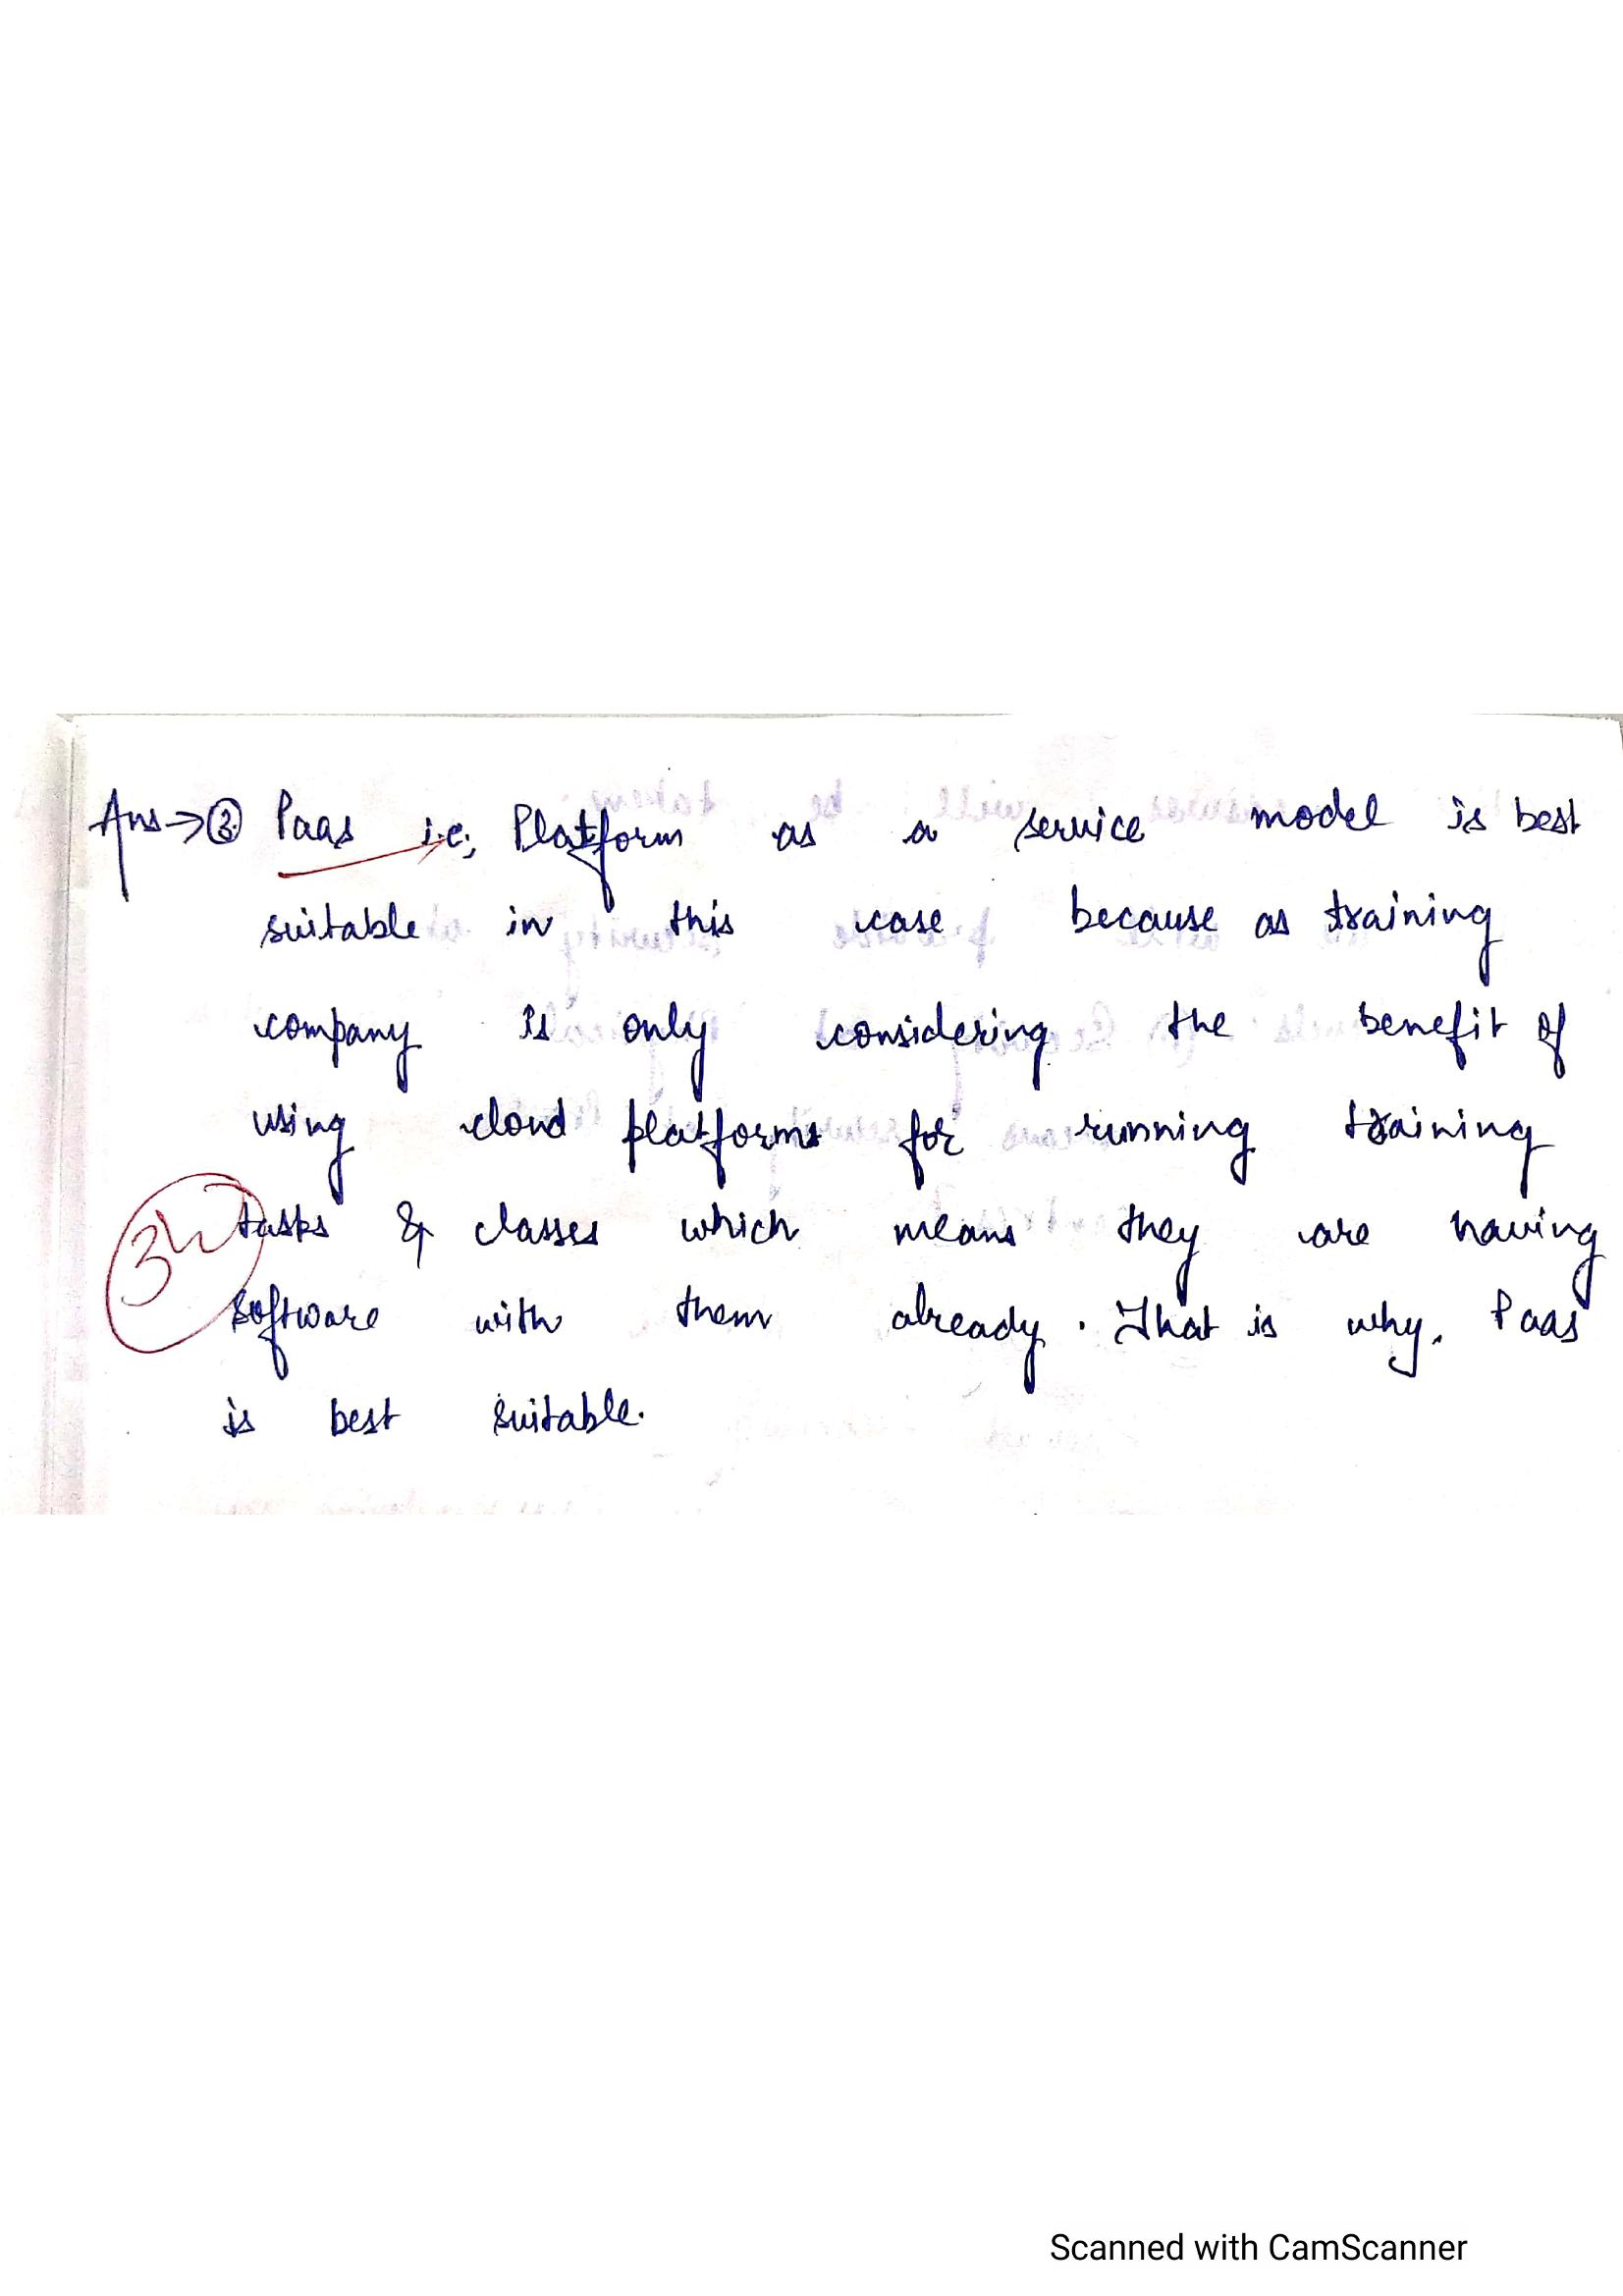 Ans→② Paas i.e; Platform as a service model is best
suitable in this case because as training
company is only considering the benefit of
using cloud platforms for running training
tasks & classes which means they are having
software with them already. That is why, Paas
is best suitable.
Scanned with CamScanner